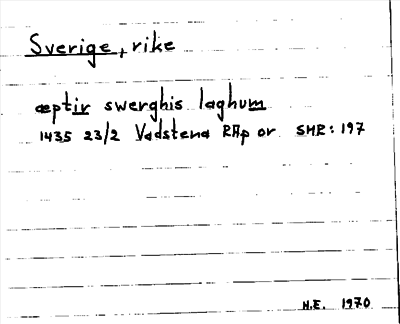 Sverige, rike
æptir swerghis laghum
1435 23/2 Vadstena RAp or SMR: 197
H.E. 1970